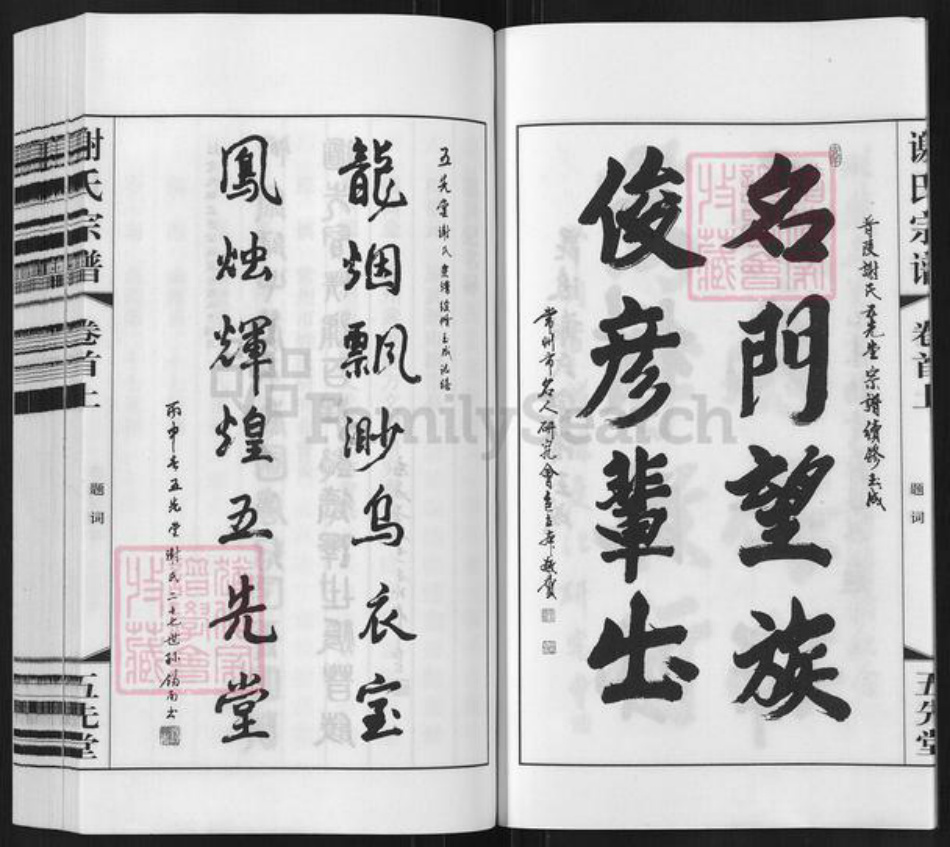 谢氏宗谱
卷首上
题词
五先堂
晋陵謝氏五先堂宗譜續修玉成
名門望族
俊彦輩出
常州市名人研究會
五先堂謝氏宗譜續修玉成誌禧
龍烟飄渺烏衣宝
鳳烛輝煌五先堂
丙申春五先堂謝氏三十七世孫
谢氏宗谱
卷首上
题词
五先堂
FamilySearch